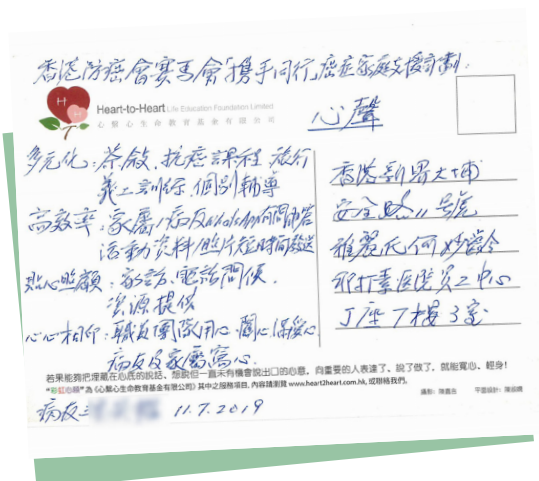 香港防癌會賽馬會「攜手同行」癌症家庭支援計劃:
Heart-to-Heart Life Education Foundation Limited
心繫心生命教育基金有限公司
心聲
多元化:茶敘,抗癌課程 旅行
義工訓練,個別輔導
高效率:家屬/病友whatsapp何問即答
活動資料/照片短時間發送
貼心照顧:家訪、電話問候,
資源提供
心心相印:職員團隊用心、關心、保愛心,
病友及家屬窩心.
香港新界大埔
安全路11號
雅麗氏何妙齡
那打素醫院員工中心
J座7樓3室
若果能夠把埋藏在心底的說話、想說但一直未有機會說出口的心意,向重要的人表達了、說了做了,就能寬心、輕身!
"彩虹心願"為《心繫心生命教育基金有限公司》其中之服務項目,內容請瀏覽 www.heart2heart.com.hk, 或聯絡我們。
攝影:陳嘉吉 平面設計:陳淑嫻
病友:
11.7.2019